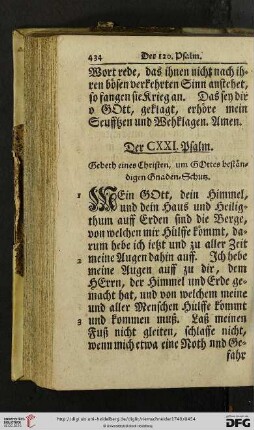 434 Der 120. Psalm.
Wort rede, das ihnen nicht nach ih-
ren bösen verkehrten Sinn anstehet,
so fangen sie Krieg an. Das sey dir
o GOtt, geklagt, erhöre mein
Seufftzen und Wehklagen. Amen.
Der CXXI. Psalm.
Gebeth eines Christen, um GOttes bestän-
digen Gnaden-Schutz.
1 MEin GOtt, dein Himmel,
und dein Haus und Heilig-
thum auff Erden sind die Berge,
von welchen mir Hülffe kömmt, da-
rum hebe ich ietzt und zu aller Zeit
2 meine Augen dahin auff. Ich hebe
meine Augen auff zu dir, dem
HErrn, der Himmel und Erde ge-
macht hat, und von welchem meine
und aller Menschen Hülffe kömmt
3 und kommen muß. Laß meinen
Fuß nicht gleiten, schlaffe nicht,
wenn mich etwa eine Noth und Ge-
fahr
http://digi.ub.uni-heidelberg.de/diglit/
© Universitätsbibliothek Heidelberg
gefördert durch die
DFG